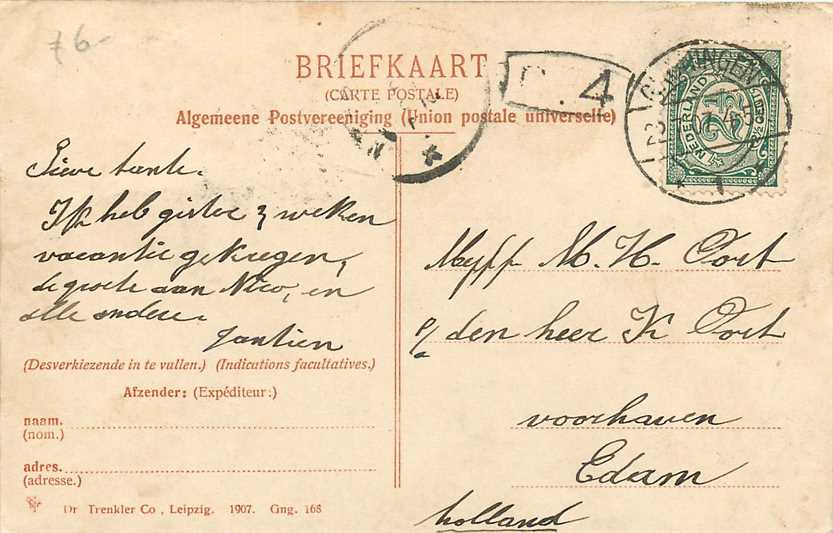 76-
BRIEFKAART
(CARTE POSTALE)
Algemeene Postvereeniging (Union postale universelle)
4
NEDERLAND
2½
Lieve tante.
Ik heb gister 3 weken
vacantie gekregen,
de groete aan Nico, en
alle andere.
Jantien
(Desverkiezende in te vullen.) (Indications facultatives.)
Afzender: (Expéditeur:)
naam.
(nom.)
adres.
(adresse.)
Dr Trenkler Co., Leipzig. 1907. Gng. 168
Mejff M. H. Oort
p/a den heer K Oort
voorhaven
Edam
holland